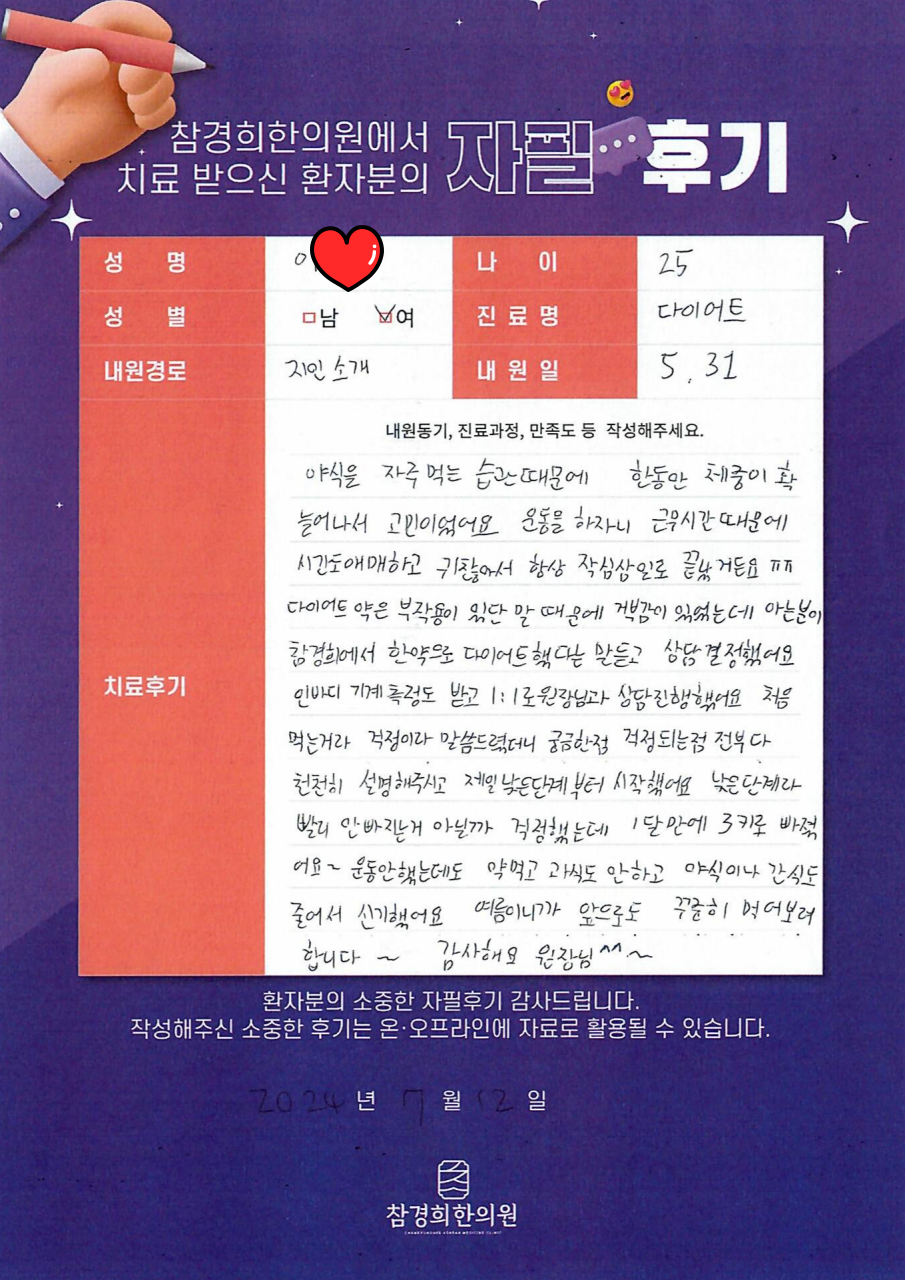 참경희한의원에서
치료 받으신 환자분의 자필 후기
성 명 이
나 이 25
성 별 □남 ☑여
진료명 다이어트
내원경로 지인 소개
내원일 5. 31
내원동기, 진료과정, 만족도 등 작성해주세요.
치료후기
야식을 자주 먹는 습관 때문에 한동안 체중이 확
늘어나서 고민이었어요 운동을 하자니 근무시간 때문에
시간도 애매하고 귀찮아서 항상 작심삼일로 끝났거든요 ㅠㅠ
다이어트 약은 부작용이 있단 말 때문에 거부감이 있었는데 아는분이
참경희에서 한약으로 다이어트했다는 말듣고 상담결정했어요
인바디 기계 측정도 받고 1:1로 원장님과 상담진행했어요 처음
먹는거라 걱정이라 말씀드렸더니 궁금한점 걱정되는점 전부 다
천천히 설명해주시고 제일 낮은단계부터 시작했어요 낮은단계라
빨리 안빠지는거 아닐까 걱정했는데 1달만에 3키로 빠졌
어요~ 운동안했는데도 약먹고 과식도 안하고 야식이나 간식도
줄어서 신기했어요 여름이니까 앞으로도 꾸준히 먹어보려
합니다 ~ 감사해요 원장님^^~
환자분의 소중한 자필후기 감사드립니다.
작성해주신 소중한 후기는 온·오프라인에 자료로 활용될 수 있습니다.
2024 년 7 월 12 일
참경희한의원